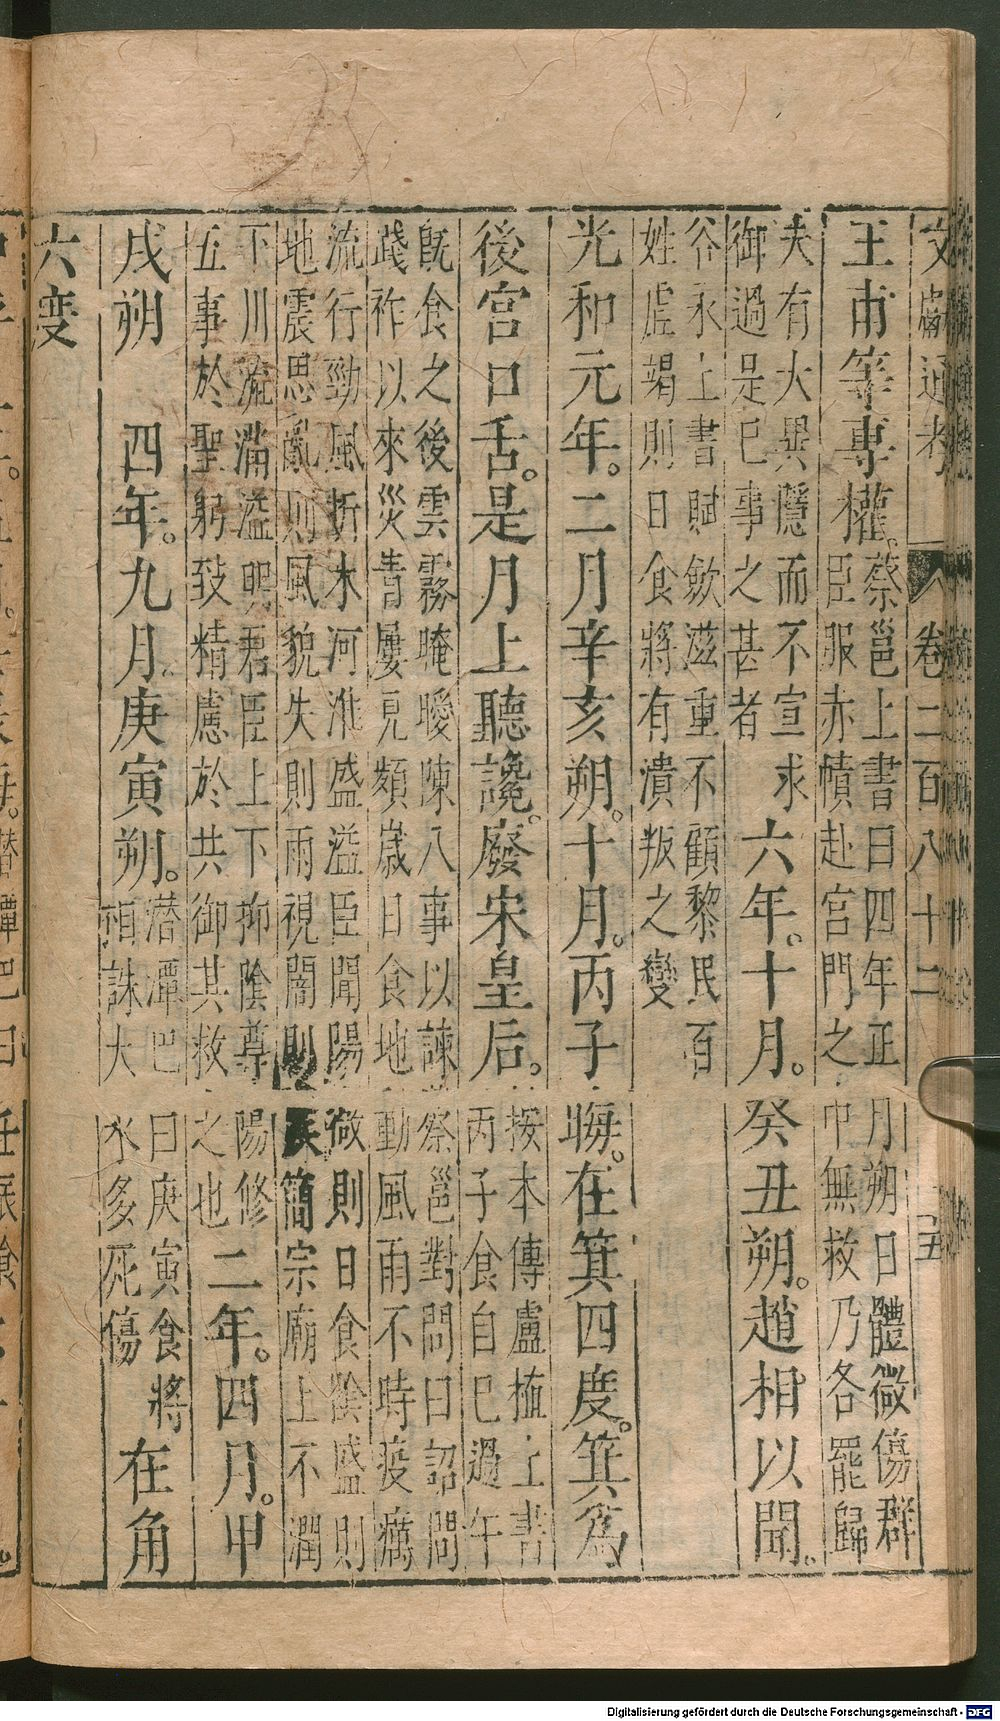 文獻通考 卷二百八十二 五
王甫等專權。
蔡邕上書曰四年正月朔日體微傷群
臣服赤幘赴宮門之中無救乃各罷歸
夫有大異隱而不宣求
御過是已事之甚者
六年。十月。癸丑朔。趙相以聞。
谷永上書賦斂滋重不顧黎民百
姓虛竭則日食將有潰叛之變
光和元年。二月辛亥朔。十月。丙子晦。在箕四度。箕爲
後宮口舌。是月上聽讒。廢宋皇后。
按本傳盧植上書
丙子食自巳過午
既食之後雲霧晻曖陳八事以諫 蔡邕對問曰詔問
踐祚以來災眚屢見頻歲日食地動風雨不時疫癘
流行勁風折木河淮盛溢臣聞陽微則日食陰盛則
地震思亂則風貌失則雨視闇則疾簡宗廟上不潤
下川流滿溢明君臣上下抑陰尊陽修
五事於聖躬致精慮於共御其救之也
二年。四月。甲
戌朔 四年。九月。庚寅朔。
潜潭巴曰庚寅食將
相誅大水多死傷
在角
六度
Digitalisierung gefördert durch die Deutsche Forschungsgemeinschaft - DFG